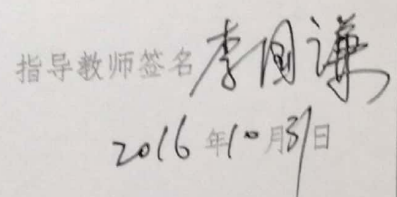 指导教师签名 李国谦
2016年10月31日